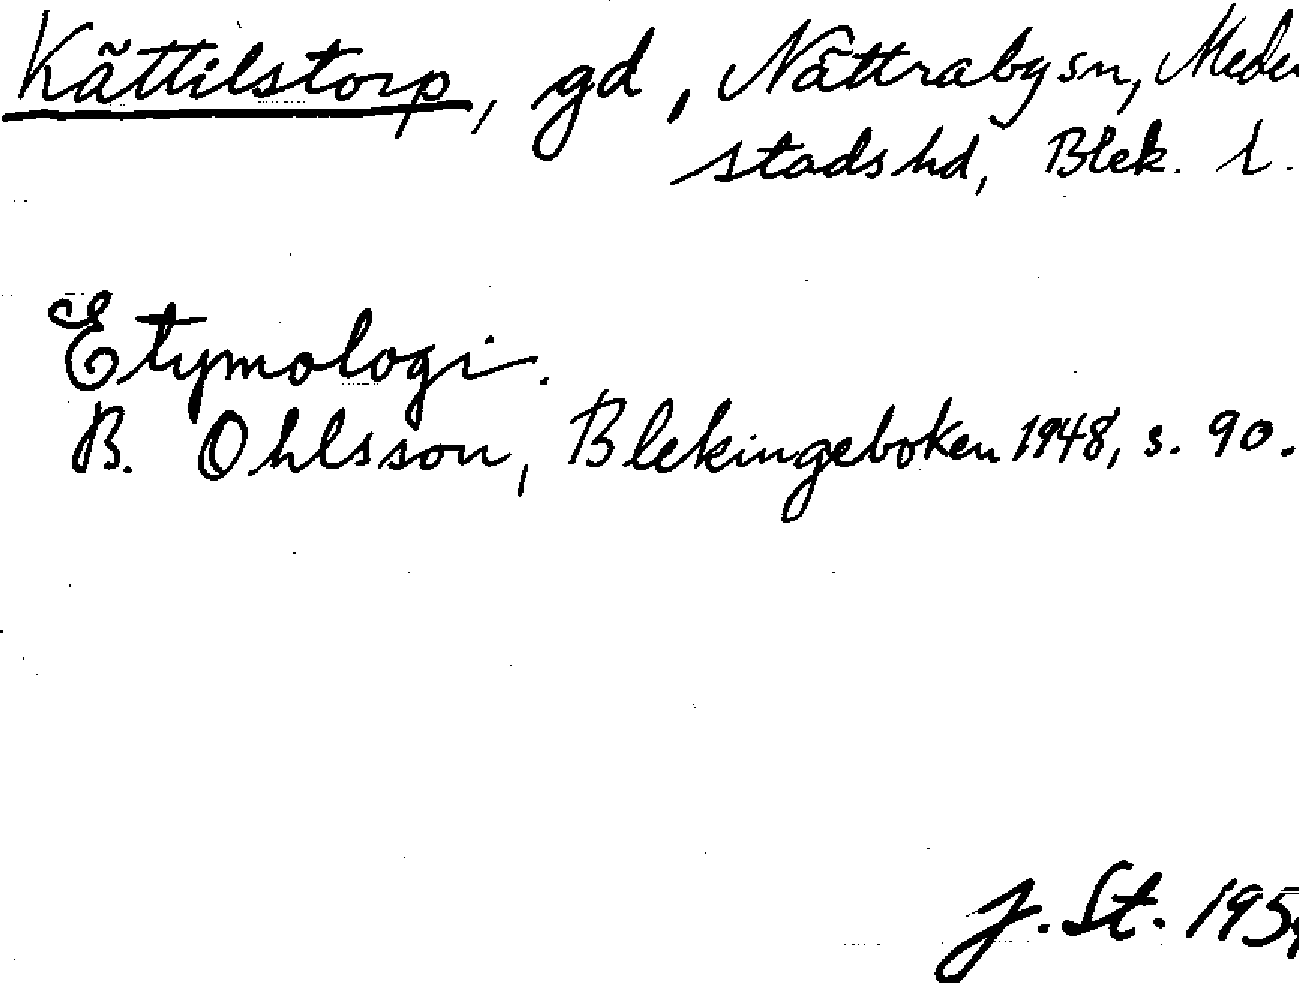 Kättilstorp, gd, Nättrabysn, Mede
stadshd, Blek. l.
Etymologi.
B. Ohlsson, Blekingeboken 1948, s. 90.
J. St. 195